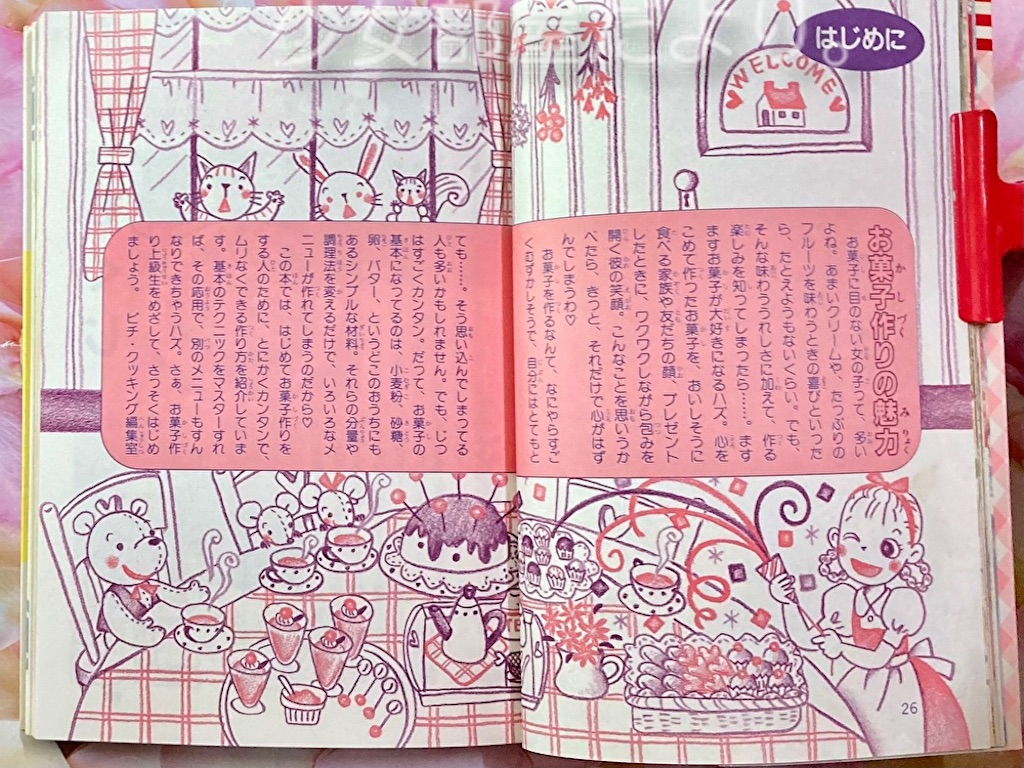 少女部屋だより。
はじめに
WELCOME
お菓子作りの魅力
お菓子に目のない女の子って、多い
よね。あまいクリームや、たっぷりの
フルーツを味わうときの喜びといった
ら、たとえようもないくらい。でも、
そんな味わううれしさに加えて、作る
楽しみを知ってしまったら……。ます
ますお菓子が大好きになるハズ。心を
こめて作ったお菓子を、おいしそうに
食べる家族や友だちの顔、プレゼント
したときに、ワクワクしながら包みを
開く彼の笑顔。こんなことを思いうか
べたら、きっと、それだけで心がはず
んでしまうわ♡
お菓子を作るなんて、なにやらすご
くむずかしそうで、自分にはとてもと
ても……。そう思い込んでしまってる
人も多いかもしれません。でも、じつ
はすごくカンタン。だって、お菓子の
基本になってるのは、小麦粉、砂糖、
卵、バター、というどこのおうちにも
あるシンプルな材料。それらの分量や
調理法を変えるだけで、いろいろなメ
ニューが作れてしまうのだから♡
この本では、はじめてお菓子作りを
する人のために、とにかくカンタンで、
ムリなくできる作り方を紹介していま
す。基本のテクニックをマスターすれ
ば、その応用で、別のメニューもすん
なりできちゃうハズ。さぁ、お菓子作
り上級生をめざして、さっそくはじめ
ましょう。 ピチ・クッキング編集室
26